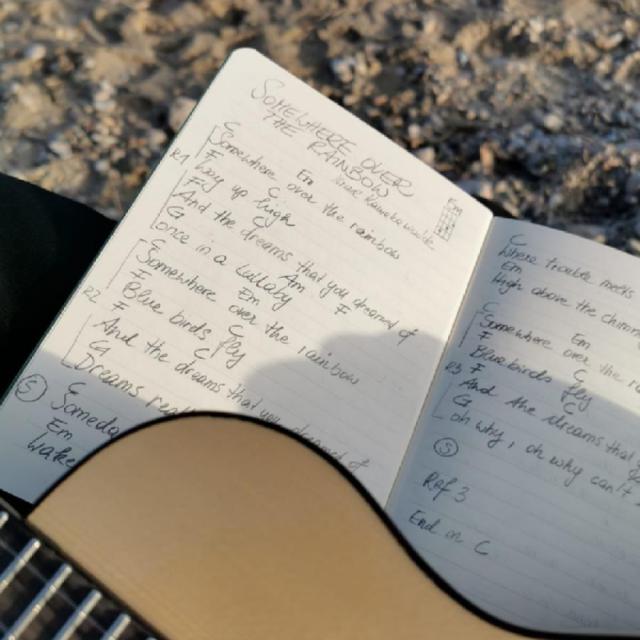 SOMEWHERE OVER
THE RAINBOW
C Em
Somewhere over the rainbow
F C
Way up high
F C
And the dreams that you dreamed of
G Am F
once in a lullaby
C Em
Somewhere over the rainbow
F C
Blue birds fly
F C
And the dreams that you dreamed of
G
Dreams
C
Someday
Em
Wake
C
Where trouble melts
Em
high above the
C Em
Somewhere over the
F C
Bluebirds fly
F C
And the dreams that
G
Oh why, oh why can't
Ref 3
End in C